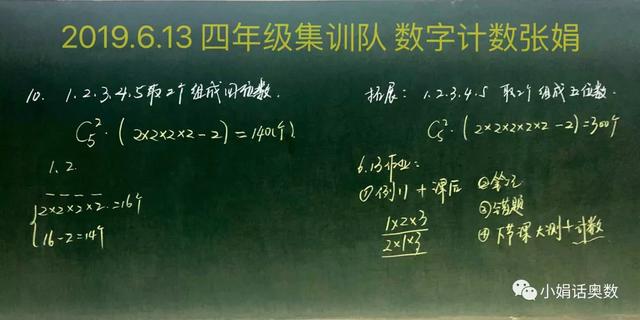 2019.6.13 四年级集训队 数字计数张娟
10. 1.2.3.4.5取2个组成四位数.
C₅²·(2×2×2×2-2)=140(个)
1.2.
2×2×2×2=16个
16-2=14个
拓展: 1.2.3.4.5 取2个组成五位数.
C₅²·(2×2×2×2×2-2)=300个
6.13作业:
①例11+课后
②笔记
③错题
④下节课大测+计数
1×2×3
2×1×3
小娟话奥数